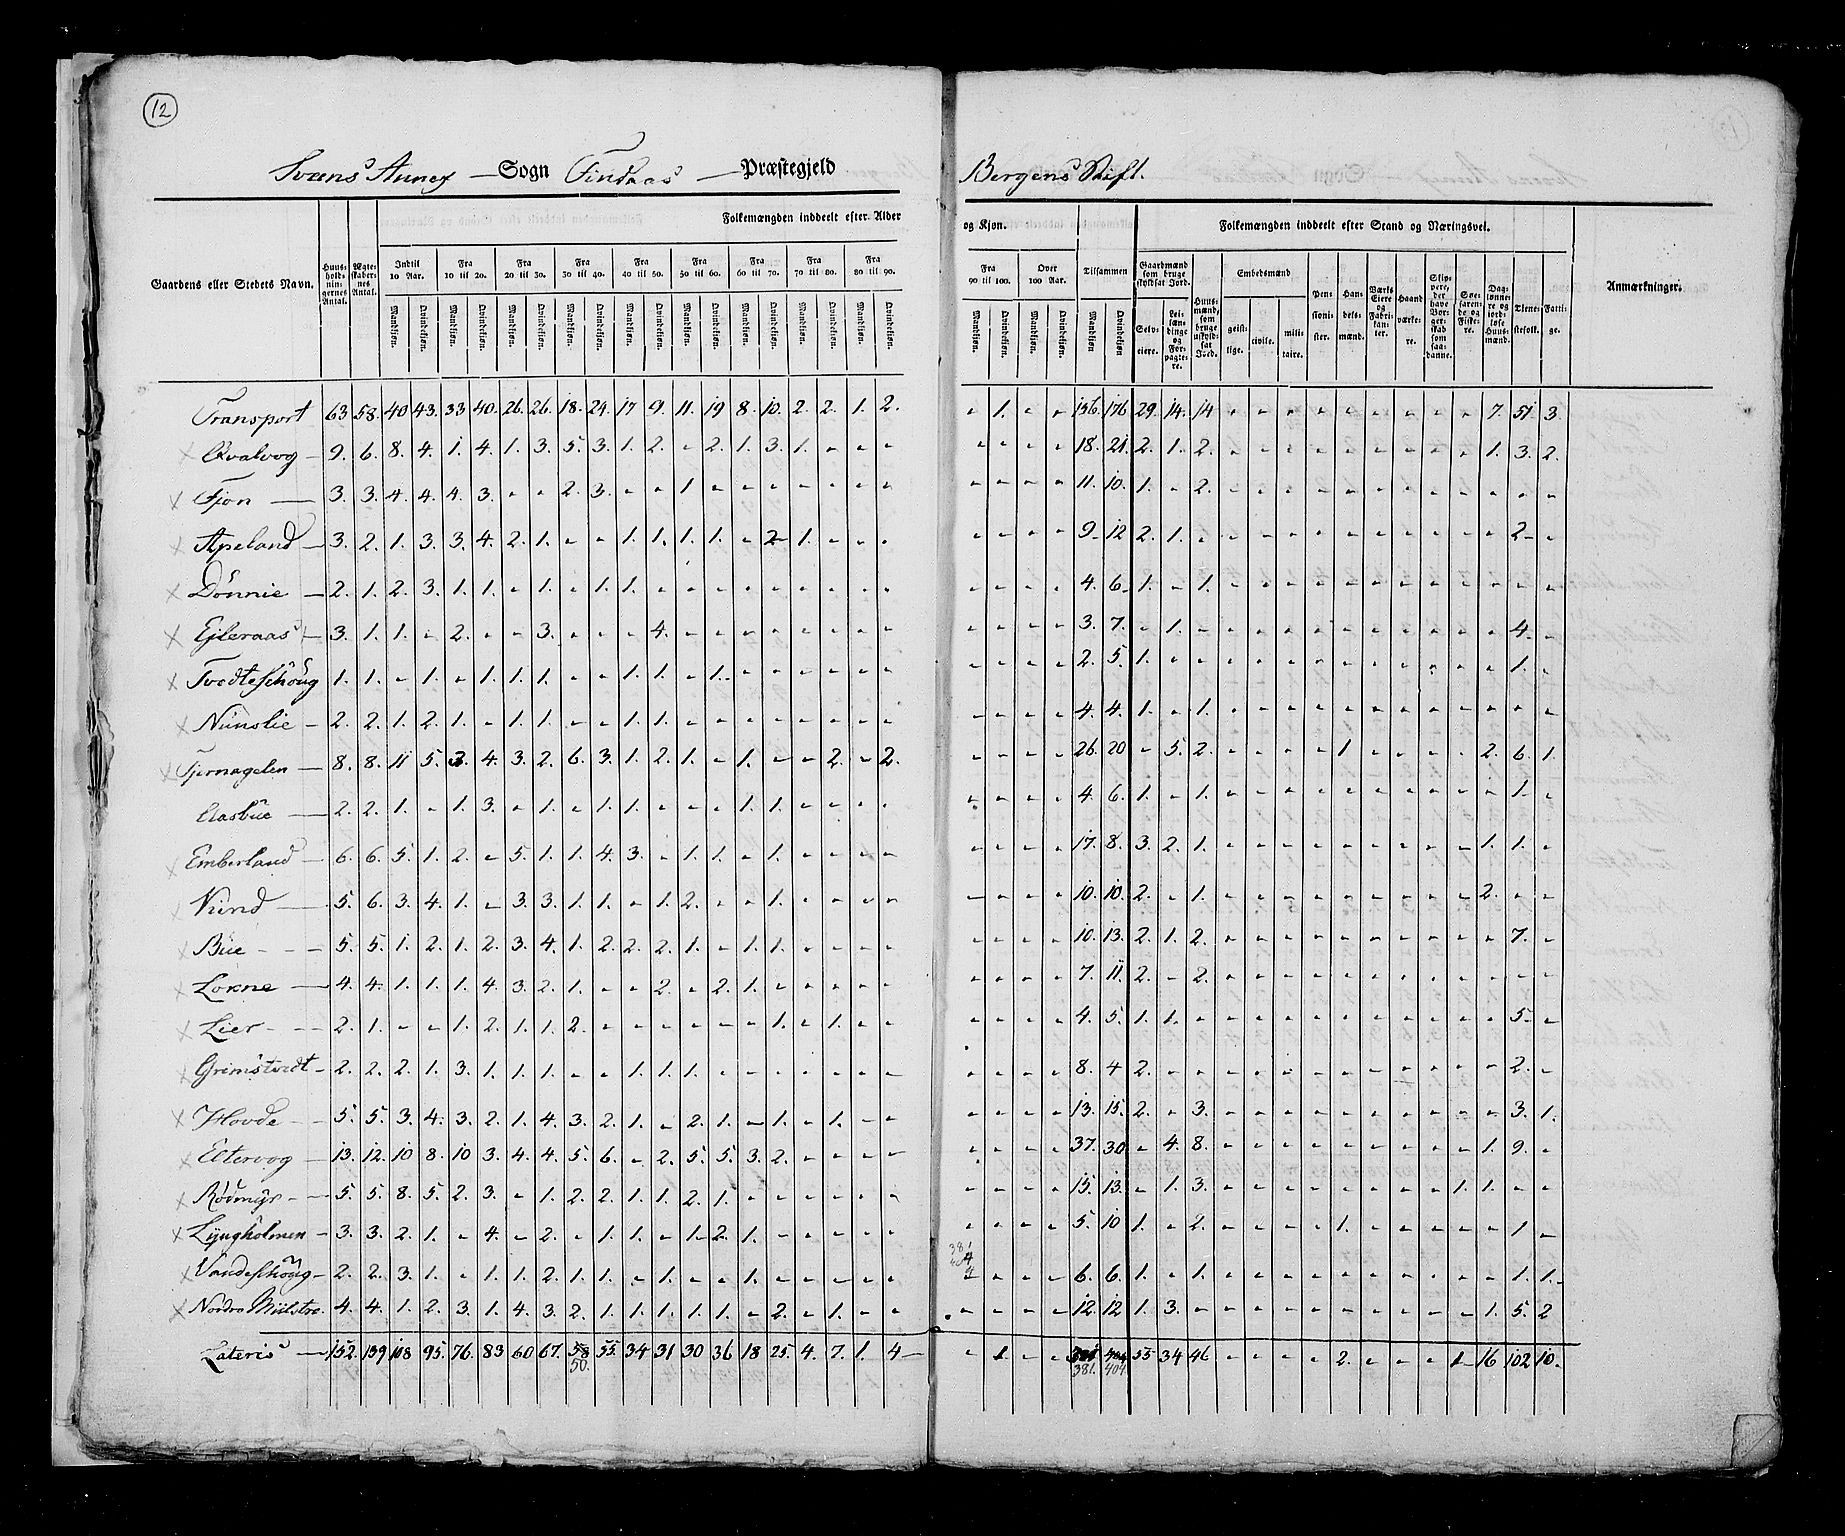 12
Svæns Annex Sogn Findaas Præstegjeld Bergens Stift.
Folkemængden inddeelt efter Alder og Kjøn. Folkemængden inddeelt efter Stand og Næringsvei.
Gaardens eller Stedets Navn. Huus-holdningernes Antal. Ægteskabernes Antal. Indtil 10 Aar. Fra 10 til 20. Fra 20 til 30. Fra 30 til 40. Fra 40 til 50. Fra 50 til 60. Fra 60 til 70. Fra 70 til 80. Fra 80 til 90. Fra 90 til 100. Over 100 Aar. Tilsammen Gaardmænd som bruge skyldsat Jord. Selveiere. Leilændinge og Forpagtere. Huusmænd, som bruge uskyldsat Jord. Embedsmænd geistlige. civile. militaire. Pensionister. Handelsmænd. Værks Eiere og Fabrikanter. Haandværkere. Skippere, der have Borgerskab som saadanne. Søefarende og Fiskere. Daglønnere og jordløse Huusmænd. Tienestefolk. Fattige. Anmærkninger.
Mandkjøn. Qvindekjøn. Mandkjøn. Qvindekjøn. Mandkjøn. Qvindekjøn. Mandkjøn. Qvindekjøn. Mandkjøn. Qvindekjøn. Mandkjøn. Qvindekjøn. Mandkjøn. Qvindekjøn. Mandkjøn. Qvindekjøn. Mandkjøn. Qvindekjøn. Mandkjøn. Qvindekjøn. Mandkjøn. Qvindekjøn. Mandkjøn Qvindekjøn.
Transport 63. 58. 40 43. 33 40. 26. 26. 18. 24. 17 9. 11. 19 8. 10. 2. 2. 1. 2. - 1. - - 156. 176 29. 14. 14 - - - - - - - - - 7. 51. 3.
Qvalvog - 9. 6. 8. 4. 1. 4. 1. 3. 5. 3. 1. 2. - 2. 1. 3. 1. - - - - - - - 18. 21. 2. 1. 2. - - - - - - - - - 1. 3. 2.
Fjon - 3. 3. 4. 4. 4. 3. - - 2. 3. - - 1 - - - - - - - - - - - 11. 10. 1. - 2. - - - - - - - - - - - -
Apeland - 3. 2. 1. 3. 3. 4. 2. 1. - - 1. 1. 1. 1. - 2 1. - - - - - - - 9 12 2. 1. - - - - - - - - - - - 2 -
Dönnie - 2. 1. 2. 3. 1. 1. - 1. - 1. 1. - - - - - - - - - - - - - 4. 6. 1. - 1. - - - - - - - - - - - -
Ejleraas - 3. 1. 1. - 2. - - 3. - - - 4. - - - - - - - - - - - - 3. 7. - 1. - - - - - - - - - - - 4. -
Tvedteschoug 1. 1. - 1. - 1. 1. 1. - - 1. 1. - 1. - - - - - - - - - - 2. 5. 1. - - - - - - - - - - - - 1. -
Nünslie - 2. 2. 1. 2. 1. - 1. 1. - - 1. 1. - - - - - - - - - - - - 4. 4. 1. - 1. - - - - - - - - - - - -
Tjernagelen - 8. 8. 11 5. 3. 4. 3. 2. 6. 3. 1. 2. 1. - 1. - - 2. - 2. - - - - 26. 20 - 5. 2. - - - - 1 - - - - 2. 6. 1.
2. 2. 1. - 1. 3. - 1. - 1. 1. - - - 1. 1. - - - - - - - - 4. 6. 1. - 1. - - - - - - - - - - 1. -
Emberland - 6. 6. 5. 1. 2. - 5. 1. 1. 4. 3. - 1. 1. - 1. - - - - - - - - 17. 8. 3. 2. 1. - - - - - - - - - 1. 1. -
Viend - 5. 6. 3. 4. 1. - 3. 3. 1. 1. - 1. 2. - - 1. - - - - - - - - 10. 10. 2. - 1. - - - - - - - - - 2. - -
Büe - - - 5. 5. 1. 2. 1. 2. 3. 4. 1. 2. 2. 2. 1. - 1. 1. - - - - - - - - 10. 13. 2. 1. 2. - - - - - - - - - - 7. -
Lokne - 4. 4. 1. 1. 1. 4. 3. 2. 1. - - 2. - 2. 1. - - - - - - - - - 7. 11. 2. - 2. - - - - - - - - - - - -
Lier - - 2. 1. - - 1. 2. 1. 1. 2. - - - - - - 1. - 1. - - - - - - 4. 5. 1. 1. - - - - - - - - - - - 5. -
Grimstvedt - 2. 2. 2. 1. 3. 1. 1. 1. - - 1. 1. 1. - - - - - - - - - - - 8. 4 2. - - - - - - - - - - - - 2. -
Hovde - 5. 5. 3. 4. 3. 2. 1. 4. 3. 2. 1. - 2. 1. - 1. - 1. - - - - - - 13. 15. 2. - 3. - - - - - - - - - - 3. 1.
Eltervog 13. 12. 10 8. 10 3. 4. 4. 5. 6. - 2. 5. 5. 3. 2. - - - - - - - - 37. 30 - 4. 8. - - - - - - - - - 1. 9. -
Rödmyr - - 5. 5. 8. 5. 2. 3. - 1. 2. 2. 1. 1. 2. 1. - - - - - - - - - - 15. 13. - 1. 3. - - - - - - - - 1. 1. - -
Lyngholmen - 3. 3. 2. 1. - 4. - 2. - 1. 1. - 1. 2. 1. - - - - - - - - - 5. 10 1. - 2. - - - - 1. - - - - - 1. -
Vandeschoug - 2. 2. 3. 1. - 1. 1. 2. 1. 1. - 1. - - 1. - - - - - - - - - 6. 6. 1. - 1. - - - - - - - - - - 1. 1.
Nordre 4. 4. 1. 2. 3. 1. 4. 3. 2. 1. 1. 1. 1. 1. - 2. - 1. - - - - - - 12. 12 1. 3. - - - - - - - - - - 1. 5. 2
Lateris - 152. 139 108 95. 76. 83 60 67. 58 55. 34 31 30 36 18 25. 4. 7. 1. 4 - - 1. - - 404 55 34 46 - - - - 2. - - - 1 16 102 10.
50. 381. 404